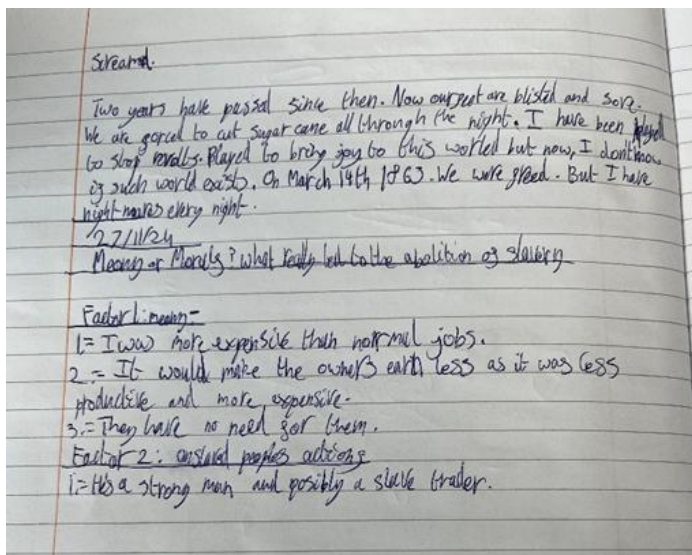 Screamd.
Two years have passal since then. Now our feet are blisted and sore.
We are forced to cut sugar cane all through the night. I have been
to stop revolts. Played to bring joy to this worled but now, I don't know
if such world exists. On March 19th 1863. We were freed. But I have
night mares every night.
27/11/24
Meony or Morals? what really led to the abolition of slavery
Factor 1: meony-
1= I was more expensive than normal jobs.
2.= It would make the owners earn less as it was less
productive and more expensive.
3.= They have no need for them.
Factor 2: enslaved peoples actions
1.= He's a strong man and posibly a slave trader.